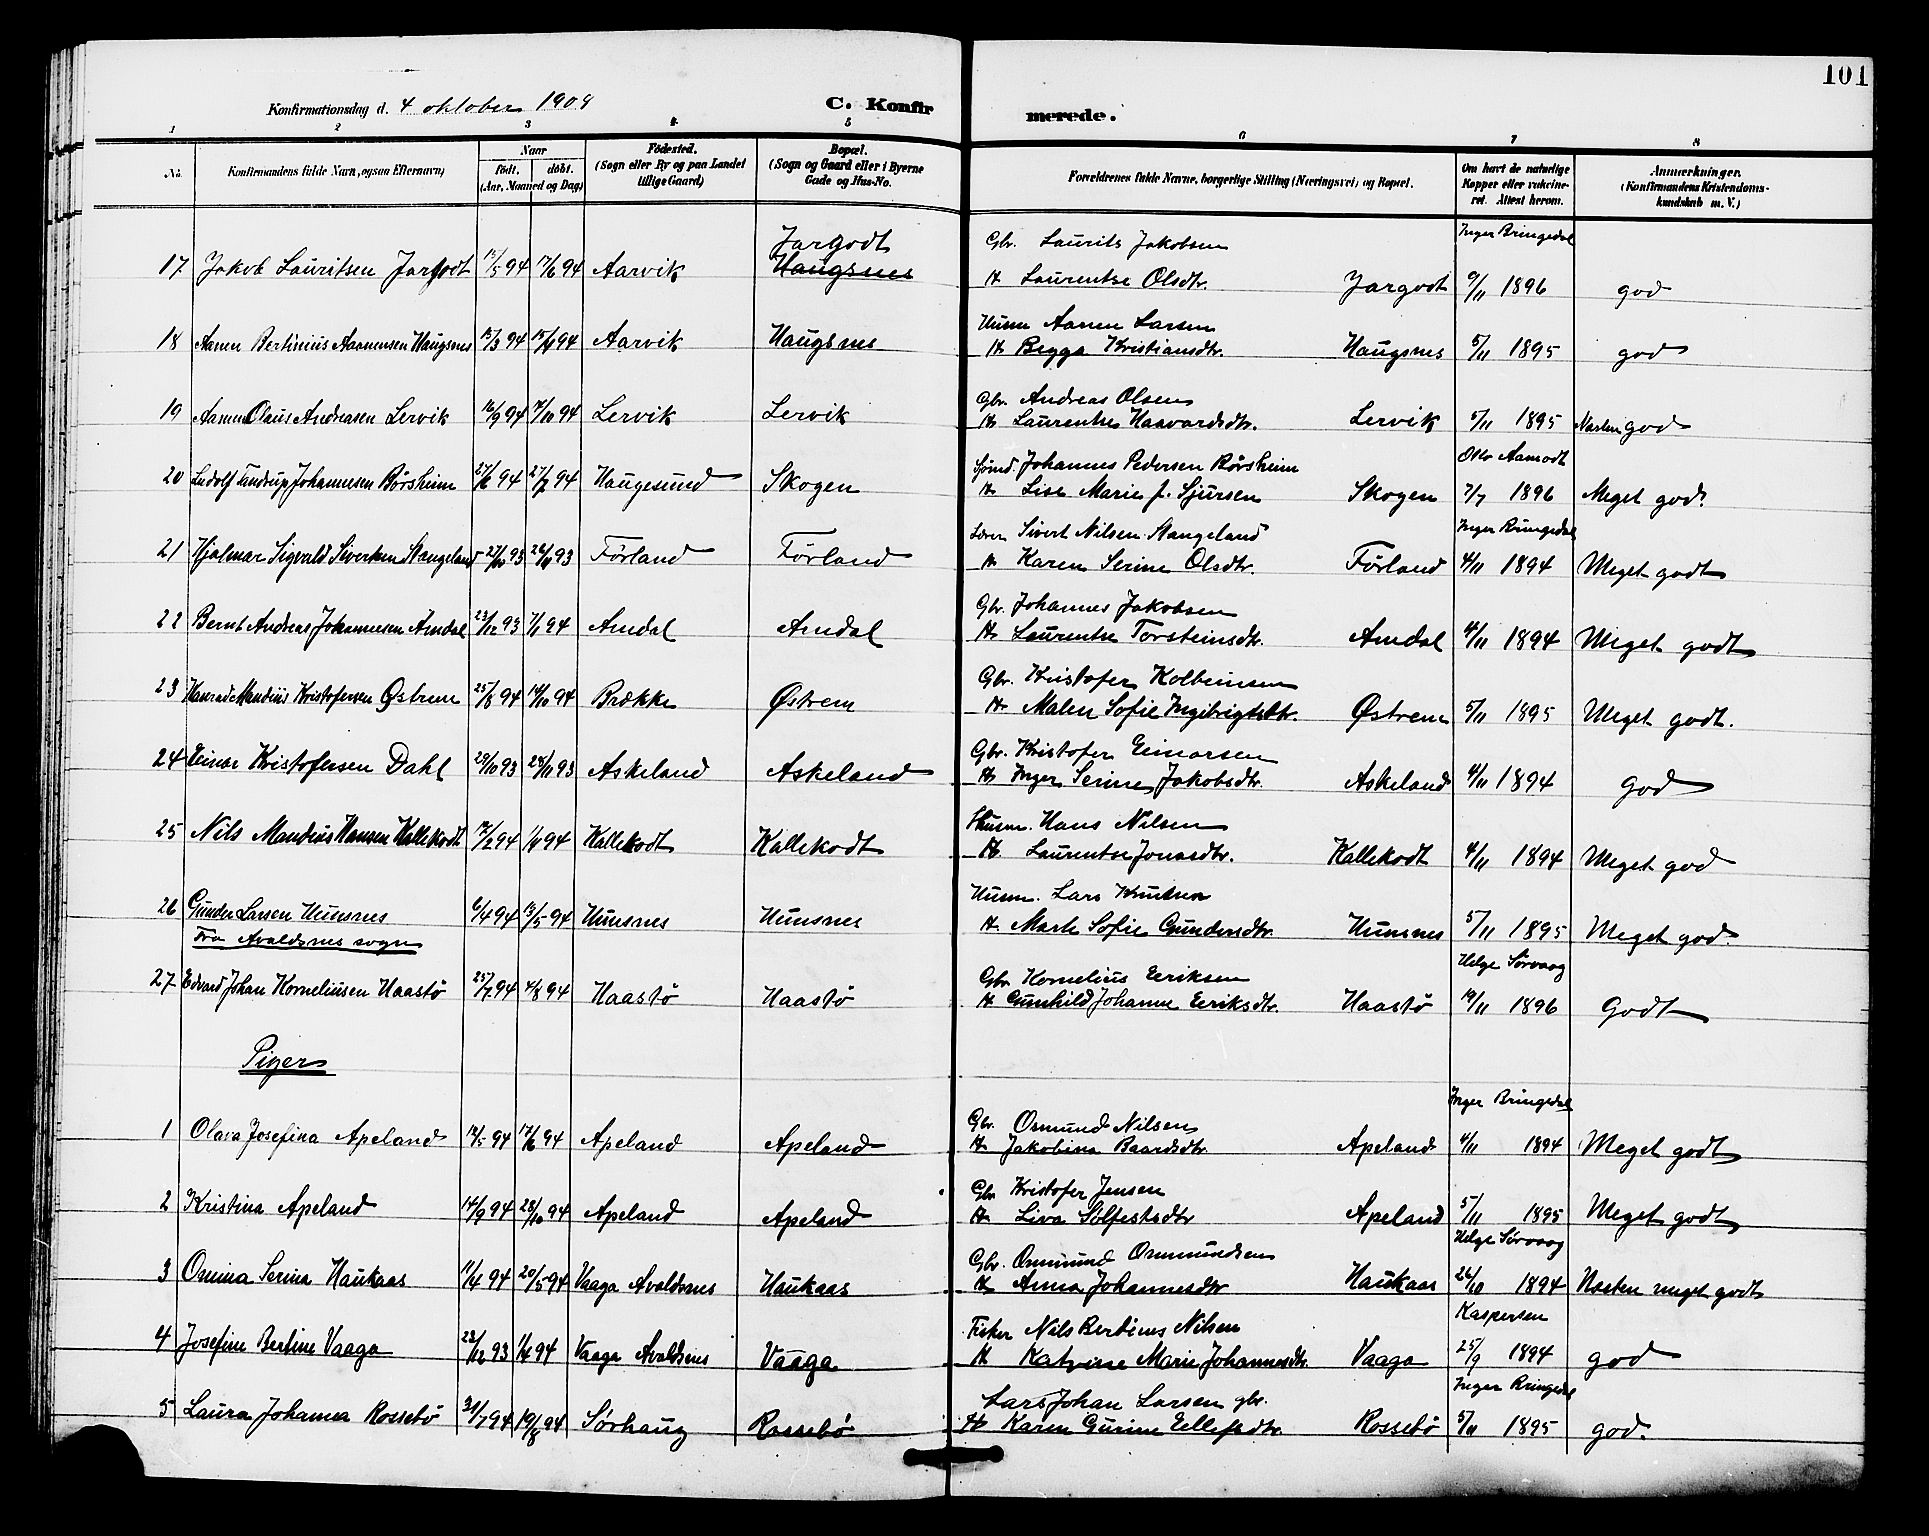 101
Konfirmationsdag d. 4 oktober 1909 C. Konfirmerede.
1 2 3 4 5 6 7 8
No. Konfirmandens fulde Navn, ogsaa Efternavn) Naar født. døbt. (Aar, Maaned og Dag) Fødested. (Sogn eller By og paa Landet tillige Gaard) Bopæl. (Sogn og Gaard eller i Byerne Gade og Hus-No. Forældrenes fulde Navne, borgerlige Stilling (Næringsvei) og Bopæl. Om havt de naturlige Kopper eller vakcineret. Attest herom. Anmærkninger. (Konfirmandens Kristendomskundskab m. V.)
Jargodt Gbr. Laurits Jakobsen Inger Bringedal
17 Jakob Lauritsen Jargodt 12/5 94 17/6 94 Aarvik Haugsnes H. Laurentse Olsdtr. Jargodt 9/11 1896 god
Husm Aanen Larsen
18 Aanen Bertinius Aanensen Haugsnes 13/3 94 15/4 94 Aarvik Haugsnes H. Begga Kristiansdtr. Haugsnes 5/11 1895 god
Gbr. Andreas Olsen
19 Aanen Olaus Andreasen Lervik 16/9 94 14/10 94 Lervik Lervik H. Laurentse Haavardsdtr. Lervik 5/11 1895 Næsten god
Sjømd. Johannes Pedersen Børsheim Olav Aamodt
20 Ludolf Tandrup Johannesen Børsheim 27/6 94 27/7 94 Haugesund Skogen H. Lise Marie f. Sjursen Skogen 7/7 1896 Meget god.
Lærer Sivert Nilsen Stangeland Inger Bringedal
21 Hjalmar Sigvald Sivertsen Stangeland 27/10 93 26/11 93 Førland Førland H. Karen Serine Olsdtr. Førland 4/11 1894 Meget godt
Gbr. Johannes Jakobsen
22 Bernt Andreas Johannesen Amdal 23/12 93 7/1 94 Amdal Amdal H. Laurentse Torsteinsdtr. Amdal 4/11 1894 Meget godt
Gbr. Kristofer Kolbeinsen
23 Konrad Mandius Kristofersen Østrem 25/8 94 14/10 94 Brække Østrem H. Malen Sofie Ingebrigtsdtr. Østrem 5/11 1895 Meget godt.
Gbr. Kristofer Einarsen
24 Einar Kristofersen Dahl 29/10 93 26/11 93 Askeland Askeland H. Inger Serine Jakobsdtr. Askeland 4/11 1894 god
Husm. Hans Nilsen
25 Nils Mandius Hansen Kallekodt 12/2 94 1/4 94 Kallekodt Kallekodt H. Laurentse Jonasdtr. Kallekodt 4/11 1894 Meget god
Husm. Lars Knutsen
26 Gunder Larsen Hunsnes 6/4 94 13/5 94 Hunsnes Hunsnes H. Marte Sofie Gundersdtr. Hunsnes 5/11 1895 Meget god.
Fra Avaldsnes sogn
Gbr Kornelius Eeriksen Helge Sørvaag
27 Edvard Johan Korneliusen Haastø 25/7 94 4/8 94 Haastø Haastø H Gunhild Johanne Eeriksdtr. Haastø 19/11 1896 Godt
Piger
Gbr. Osmund Nilsen Inger Bringedal
1 Olava Josefina Apeland 12/5 94 17/6 94 Apeland Apeland H Jakobina Baardsdtr Apeland 4/11 1894 Meget godt
Gbr Kristofer Jensen
2 Kristina Apeland 14/9 94 28/10 94 Apeland Apeland H. Liva Solfestsdtr Apeland 5/11 1895 Meget godt
Gbr. Osmund Osmundsen Helge Sørvaag
3 Omina Serina Haukaas 11/4 94 20/5 94 Vaaga Avaldsnes Haukaas H. Anna Johannesdtr Haukaas 26/10 1894 Næsten meget godt
Fisker Nils Bertinus Nilsen Kaspersen
4 Josefine Bertine Vaaga 23/12 93 1/4 94 Vaaga Avaldsnes Vaaga H Katrine Marie Johannesdtr. Vaaga 25/9 1894 god
Lars Johan Larsen gbr. Inger Bringedal
5 Laura Johanna Rossebø 31/7 94 19/8 94 Sørhaug Rossebø H Karen Gurine Ellefsdtr Rossebø 5/11 1895 god.